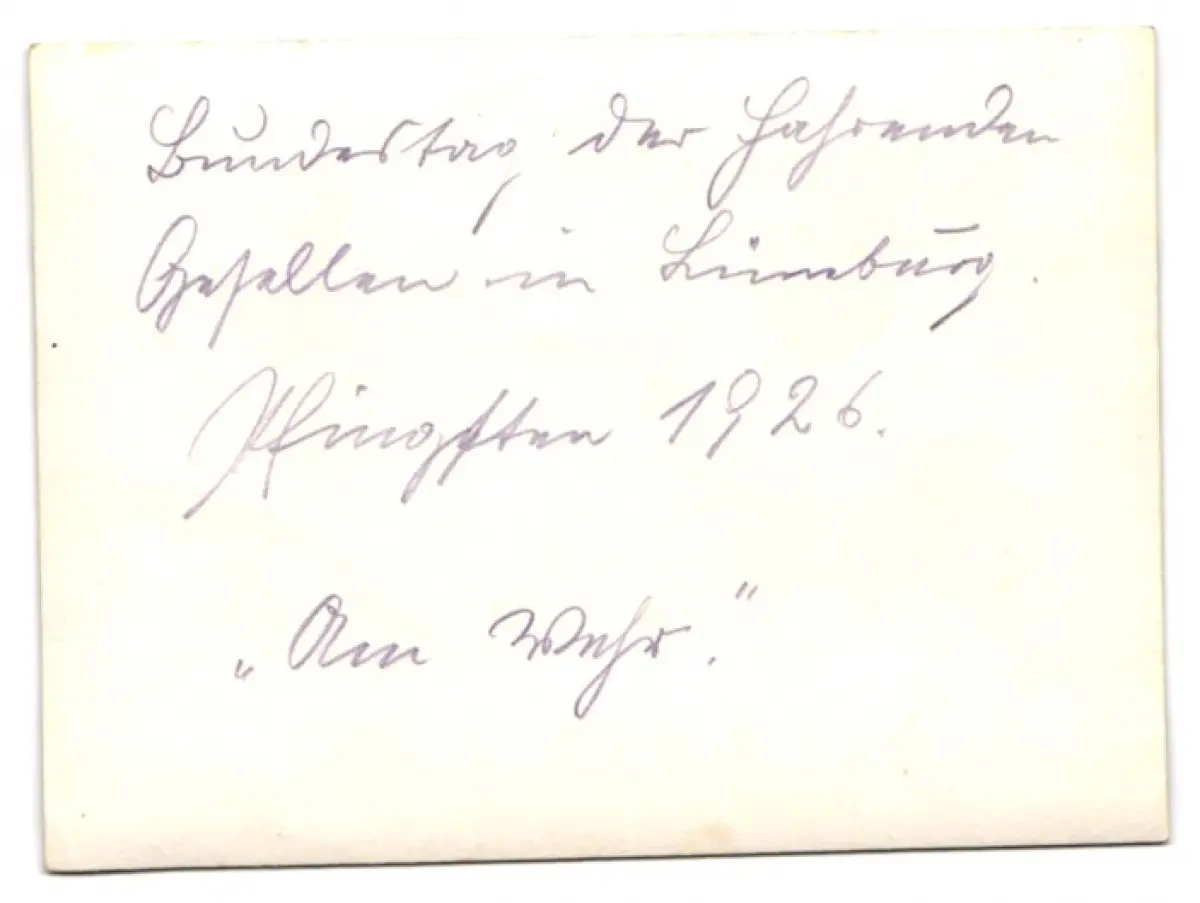 Bundestag der Fahrenden
Gesellen in Lüneburg.
Pfingsten 1926.
„Am Wehr."